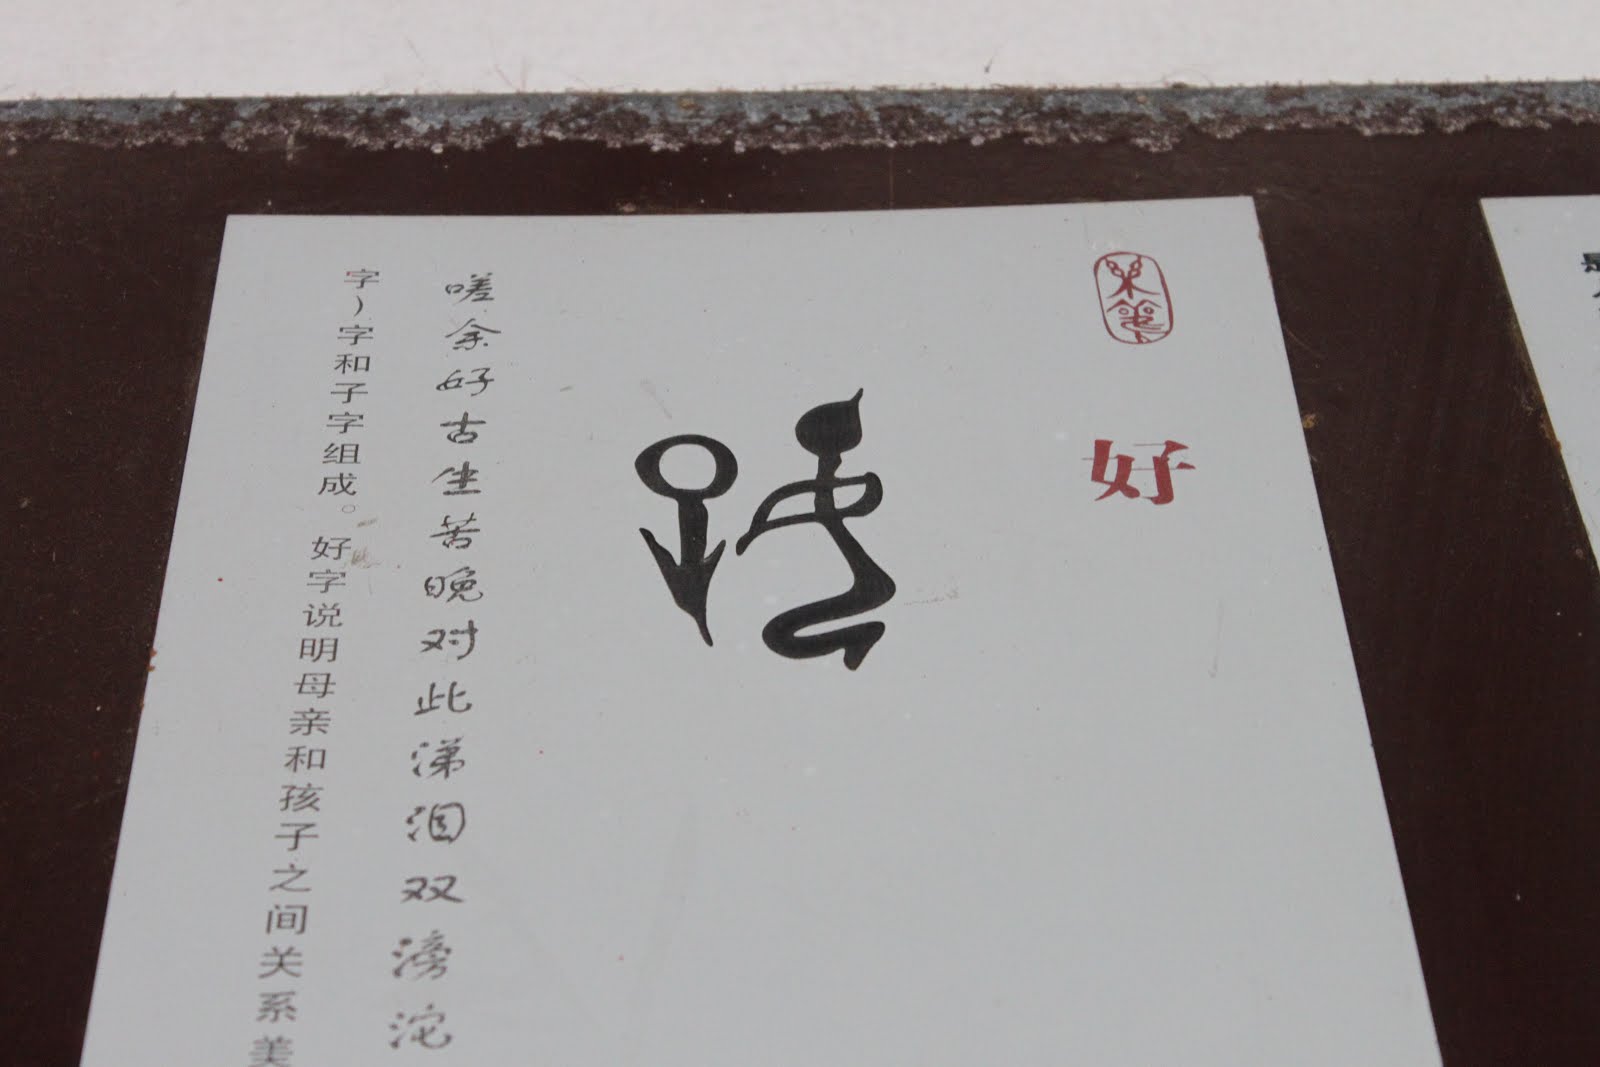 好
嗟余好古生苦晚对此涕泪双滂沱
字）字和子字组成。好字说明母亲和孩子之间关系美